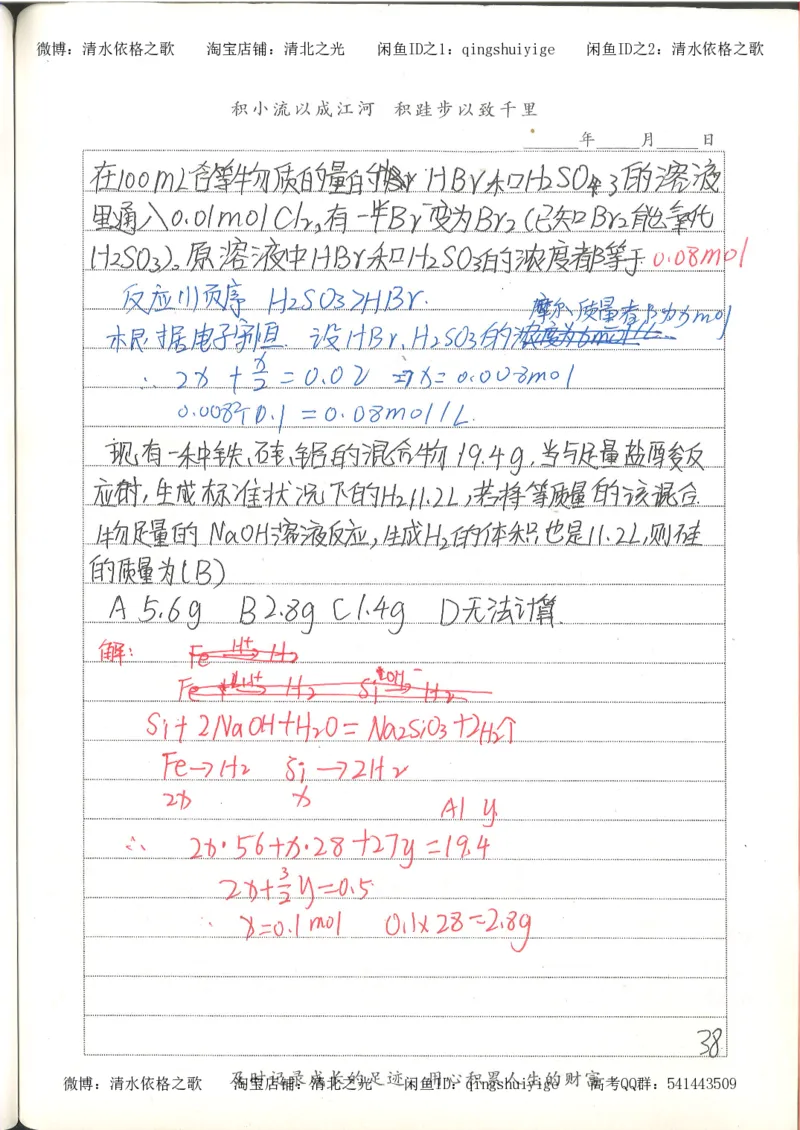 微博：清水依格之歌 淘宝店铺：清北之光 闲鱼ID之1：qingshuiyige 闲鱼ID之2：清水依格之歌
积小流以成江河 积跬步以致千里
年 月 日
在100mL含等物质的量的 HBr和H2SO3的溶液
里通入0.01molCl2,有一半Br⁻变为Br2(已知Br2能氧化
H2SO3)。原溶液中HBr和H2SO3的浓度都等于 0.08mol
反应顺序 H2SO3>HBr.
摩尔质量者都为xmol
根据电子守恒. 设HBr、H2SO3的
∴ 2x + x/2 = 0.02 ⇒x= 0.008mol
0.008÷0.1 = 0.08mol/L.
现有一种铁、硅、铝的混合物19.4g,当与足量盐酸反
应时,生成标准状况下的H211.2L,若将等质量的该混合
物足量的NaOH溶液反应,生成H2的体积也是11.2L,则硅
的质量为(B)
A 5.6g B 2.8g C 1.4g D 无法计算.
解: Fe H+ H2
Fe H+ H2 Si OH⁻ H2
Si+2NaOH+H2O= Na2SiO3+2H2↑
Fe→H2 Si→2H2
2x x Al y
∴ 2x·56+x·28+27y=19.4
2x+3/2y=0.5
∴ x=0.1mol 0.1×28=2.8g
38
及时记录成长的足迹 用心积累人生的财富
微博：清水依格之歌 淘宝店铺：清北之光 闲鱼ID：qingshuiyige 高考QQ群：541443509